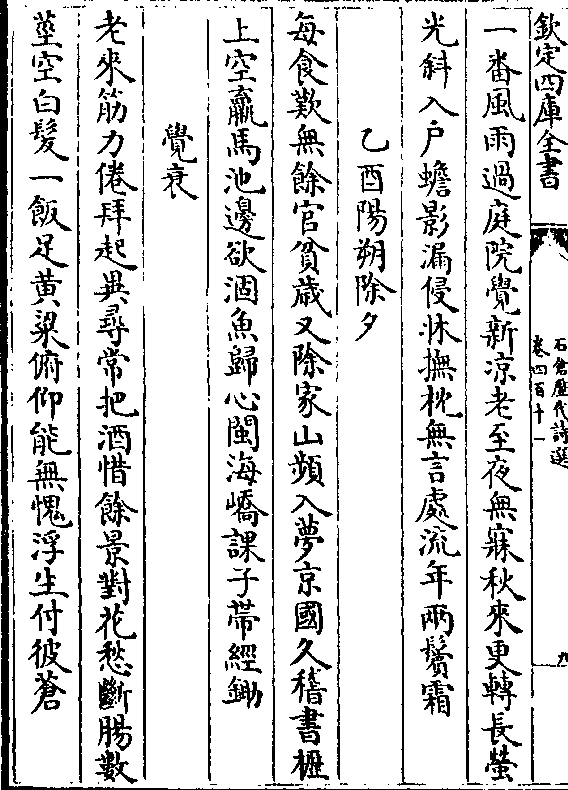 欽定四庫全書
石倉歷代詩選
卷四百十一
九
一番風雨過庭院覺新凉老至夜無寐秋來更轉長螢
光斜入户蟾影漏侵牀撫枕無言處流年兩鬢霜
乙酉陽朔除夕
每食歎無餘官貧歳又除家山頻入夢京國久稽書櫪
上空羸馬池邊欲涸魚歸心閩海嶠課子帶經鋤
覺衰
老來筋力倦拜起異尋常把酒惜餘景對花愁斷腸數
莖空白髪一飯足黄粱俯仰能無愧浮生付彼蒼